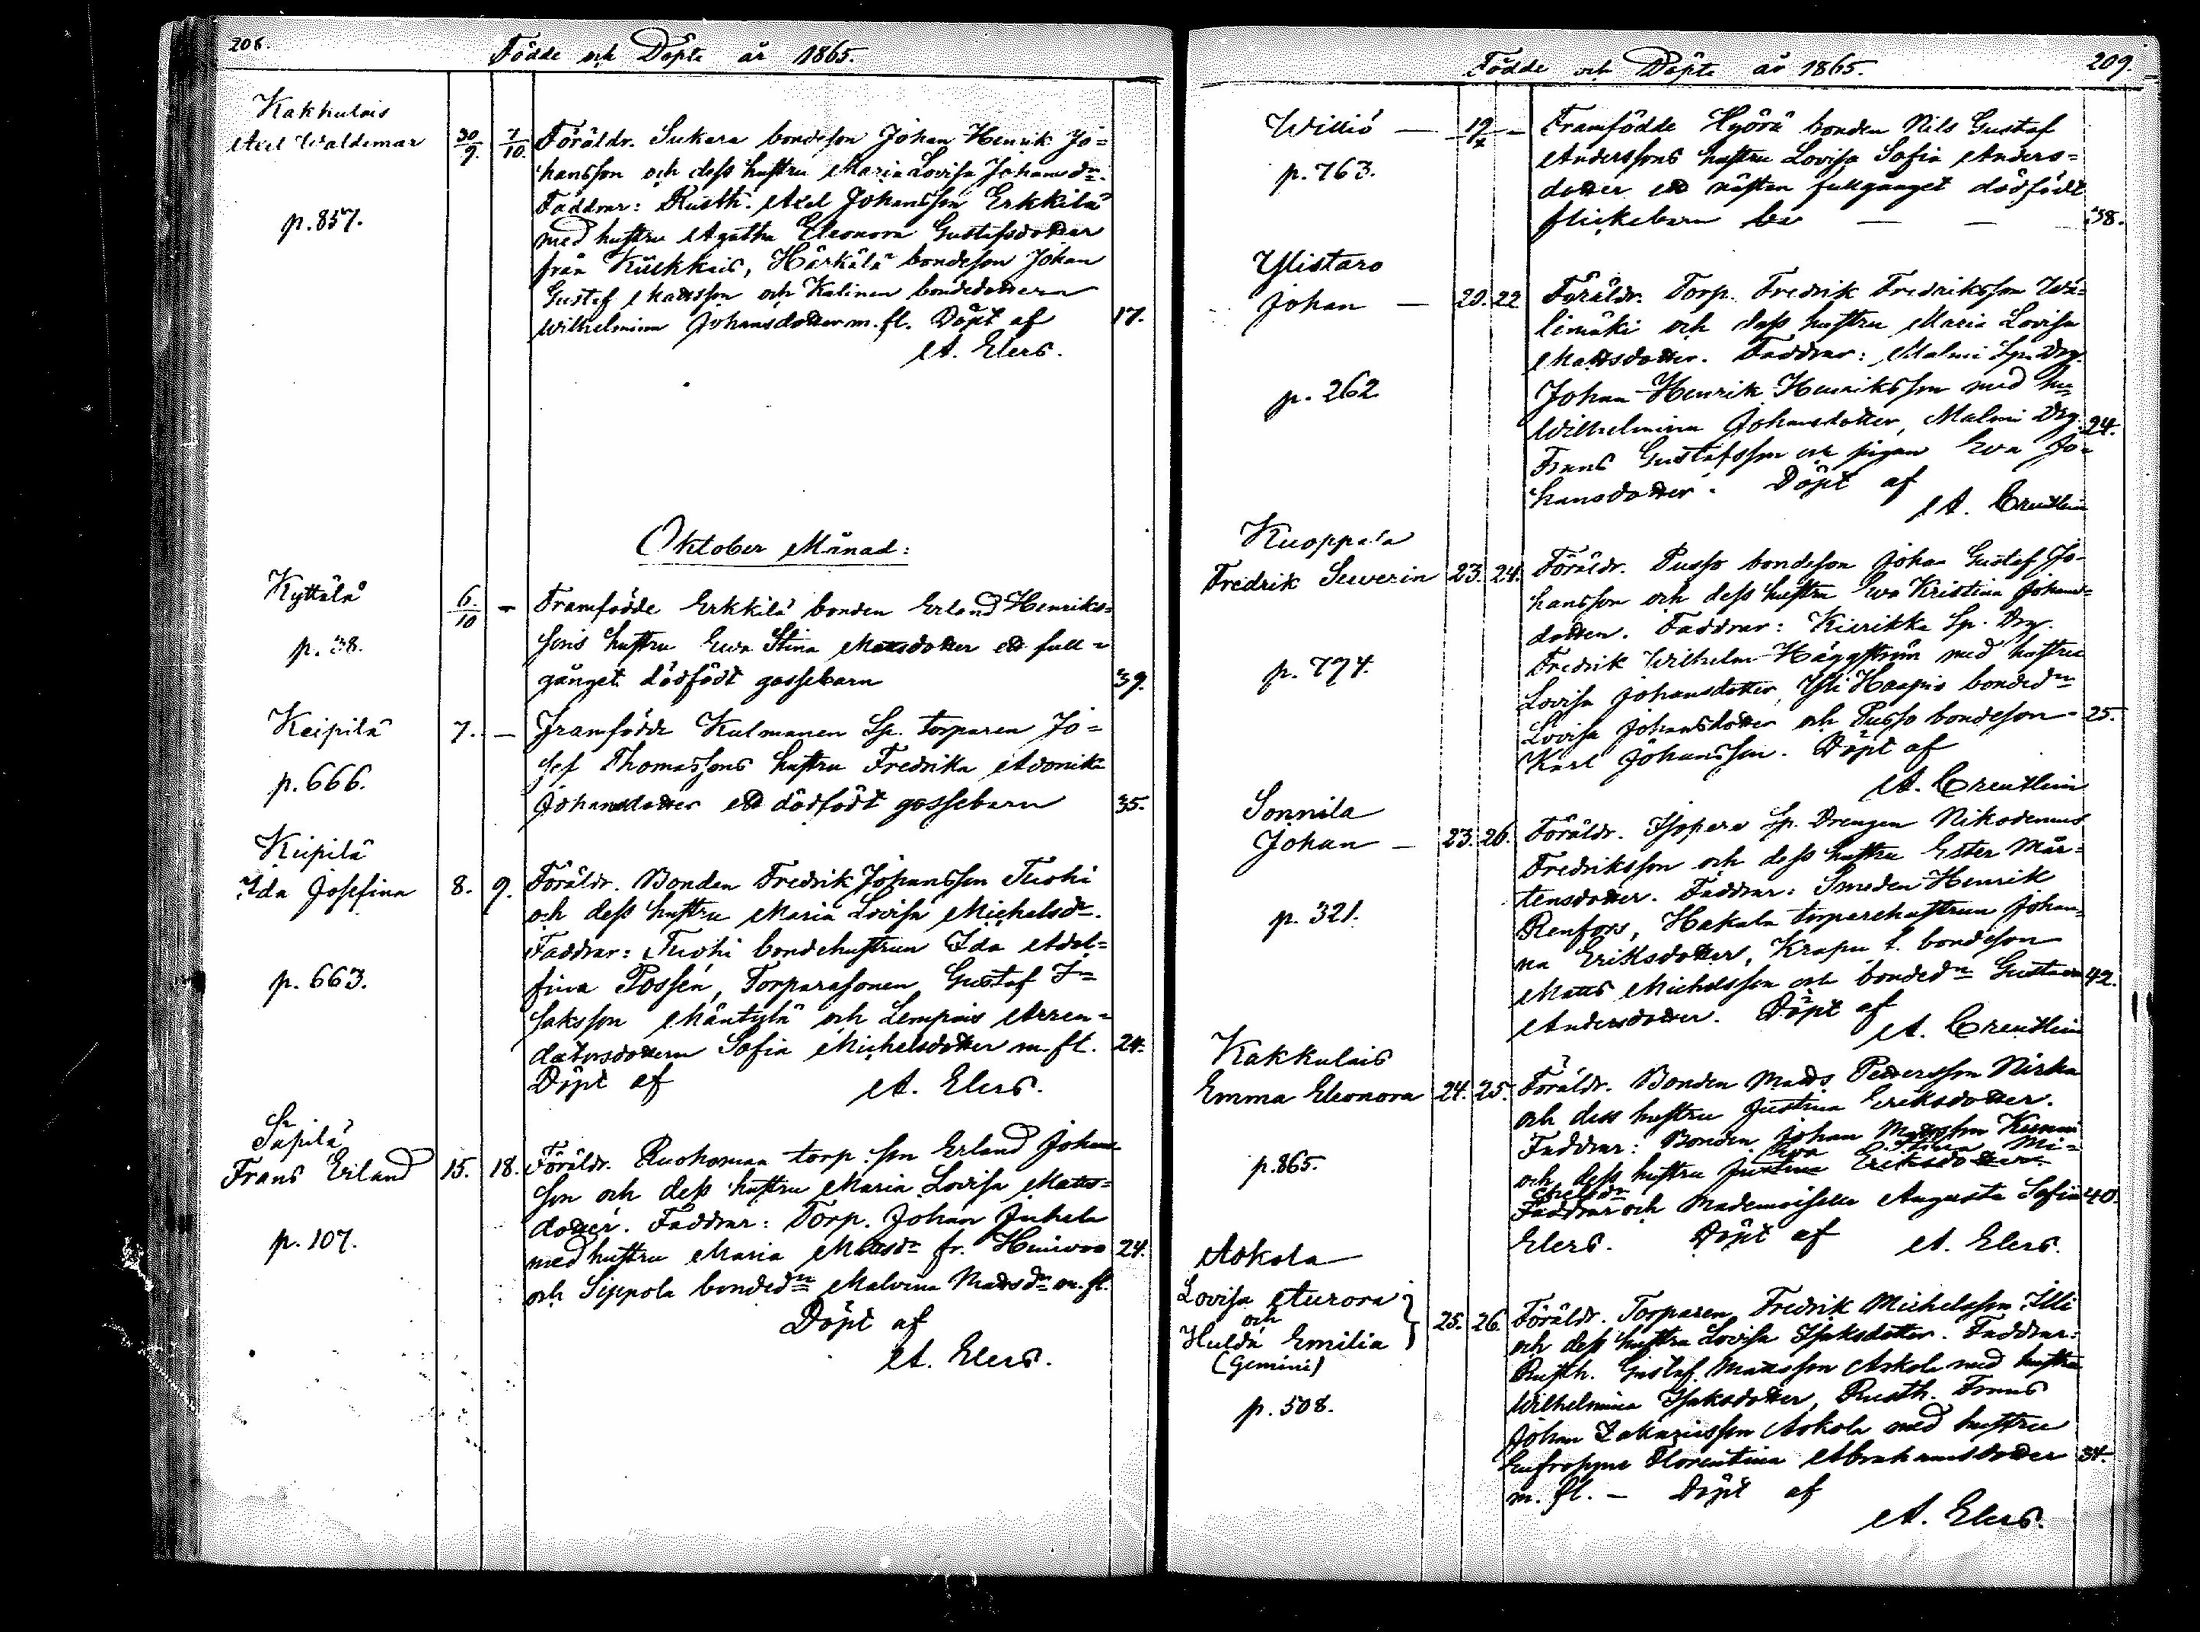 208.
Födde och Döpte år 1865.
Kakkulais
Axel Waldemar 30/9. 7/10. Föräldr. Sukara bondeson Johan Henrik Jo=
hansson och dess hustru Maria Lovisa Johansdr.
Faddrar: Rusth. Axel Johansson Erkkilä
p. 857.
med hustru Agatha Eleonora Gustafsdotter
från Härkälä bondeson Johan
Gustaf Mattsson och Kalinen bondedottern
Wilhelmina Johansdotter m. fl. Döpt af 17.
A. Elers.
Oktober Månad:
Kyttälä 6/10 — Framfödde Erkkilä bonden Erland Henriks=
sons hustru Ewa Stina Mattsdotter ett full=
p. 38.
gånget dödfödt gossebarn 39.
Keipilä 7. — Framfödde Kulmanen Sp. torparen Jo=
sef Thomassons hustru Fredrika
p. 666.
Johansdotter ett dödfödt gossebarn 35.
Keipilä
Ida Josefina 8. 9. Föräldr. Bonden Fredrik Johansson Tuohi
och dess hustru Maria Lovisa Michelsdr.
Faddrar: Tuohi bondehustrun Ida Adol=
p. 663.
fina Possén, Torparesonen Gustaf I=
saksson Mäntylä och Lempois Arren=
datorsdottern Sofia Michelsdotter m. fl. 24.
Döpt af A. Elers.
Sapilä
Frans Erland 15. 18. Föräldr. Ruohoman torp. son Erland Johans=
son och dess hustru Maria Lovisa Matts=
dotter. Faddrar: Torp. Johan Juhela
p. 107.
med hustru Maria Mattsdr fr. Heinoo 24.
och Sippola bondedn Malvina Mattsdr m. fl.
Döpt af
A. Elers.
Födde och Döpte år 1865. 209.
Williö — 19/ — Framfödde Hyörä bonden Nils Gustaf
Anderssons hustru Lovisa Sofia Anders=
p. 763.
dotter ett nästan fullgånget dödfödt
flickebarn — — 38.
Ylistaro
Johan — 20. 22. Föräldr. Torp. Fredrik Fredriksson Wä=
limäki och dess hustru Maria Lovisa
Mattsdotter. Faddrar: Malmi Sp. Drg.
p. 262
Johan Henrik Henriksson med hu=
Wilhelmina Johansdotter, Malmi Drg. 24.
Frans Gustafsson och pigan Eva Jo=
hansdotter. Döpt af
A. Creutlein
Kuoppala
Fredrik Suverin 23. 24. Föräldr. Pusso bondeson Johan Gustaf Jo=
hansson och dess hustru Eva Kristina Johans=
dotter. Faddrar: Kierikka Sp. Drg.
p. 774.
Fredrik Wilhelm Häggström med hustru
Lovisa Johansdotter, Yli Haapio bondedn
Lovisa Johansdotter och Pusso bondeson 25.
Karl Johansson. Döpt af
A. Creutlein
Sonnila
Johan — 23. 26. Föräldr. Isopere Sp. Drengen Nikodemus
Fredriksson och dess hustru Ester Mår=
tensdotter. Faddrar: Smeden Henrik
p. 321.
Renfors, Hakala torparehustrun Johan=
na Eriksdotter, Krapu t. bondeson
Matts Michelsson och bondedn Gustava 42.
Andersdotter. Döpt af
A. Creutlein
Kakkulais
Emma Eleonora 24. 25. Föräldr. Bonden Matts Pettersson Nirka
och dess hustru Justina Eriksdotter.
Faddrar: Bonden Johan Mattsson Kunni
Eva Stina Mi=
p. 865.
och dess hustru Justina Eriksdotter
chelsdr
Faddrar och Mademoiselle Augusta Sofia 40.
Elers. Döpt af A. Elers.
Askola
Lovisa Aurora
och
Hulda Emilia
(Gemini) 25. 26. Föräldr. Torparen Fredrik Michelsson Illi
och dess hustru Lovisa Isaksdotter. Faddrar:
Rusth. Gustaf Mattsson Askola med hustru
Wilhelmina Isaksdotter, Rusth. Frans
p. 508.
Johan Zakariasson Askola med hustru
Eufrosyne Florentina Abrahamsdotter 34.
m. fl. — Döpt af
A. Elers.